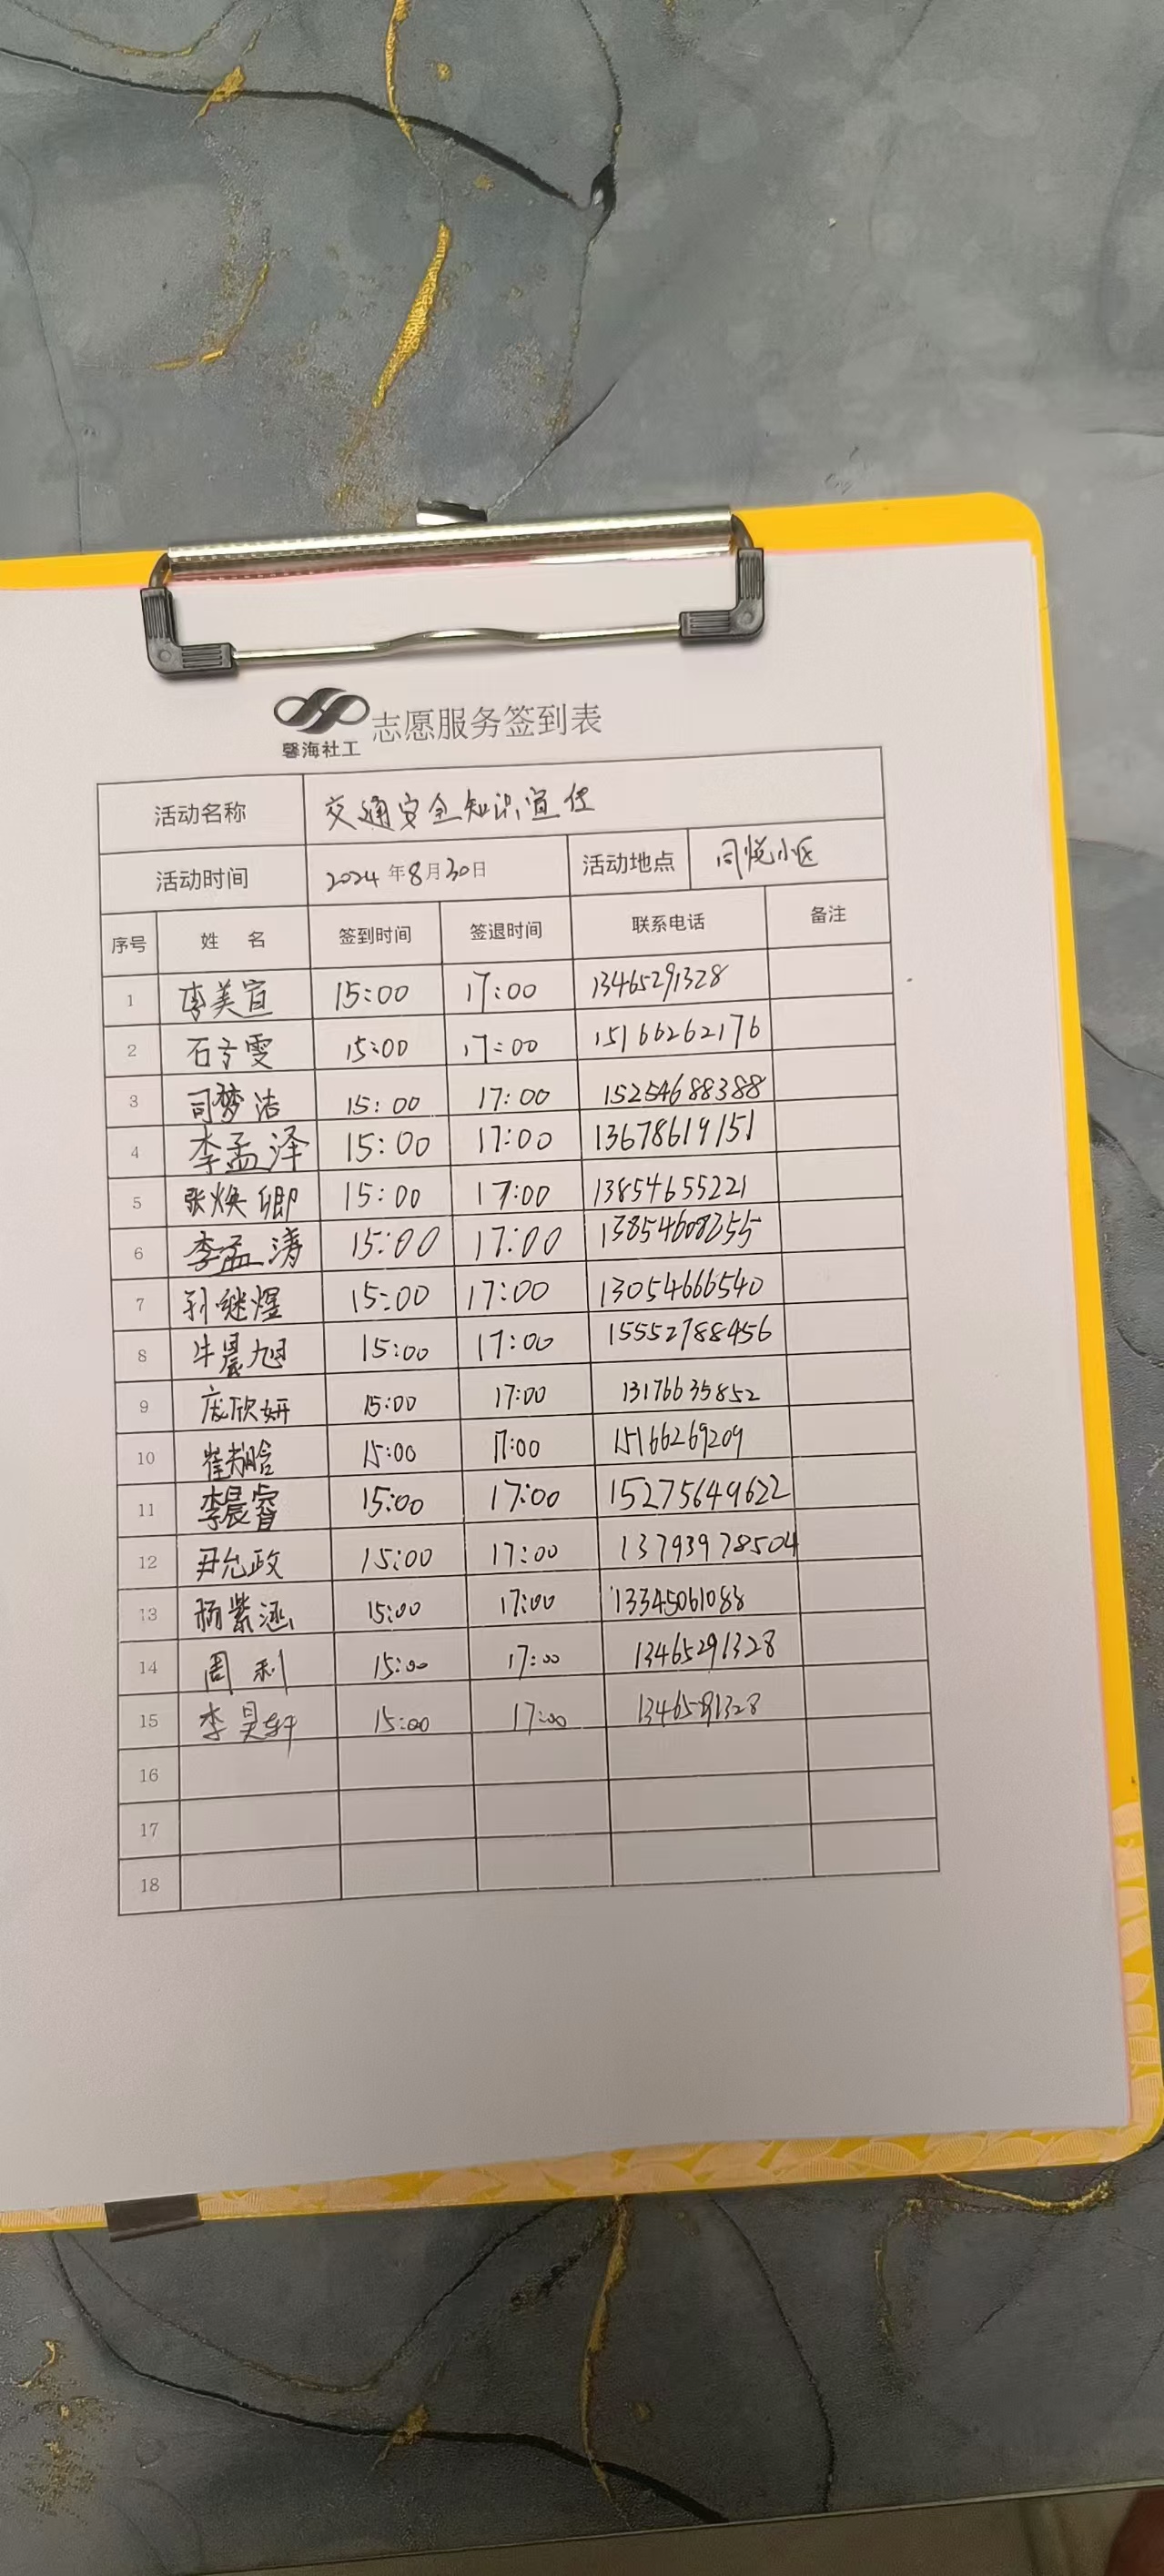 馨海社工 志愿服务签到表
活动名称 交通安全知识宣传
活动时间 2024年8月30日 活动地点 同悦小区
序号 姓 名 签到时间 签退时间 联系电话 备注
1 李美宣 15:00 17:00 13465291328
2 石 雯 15:00 17:00 15166262176
3 司梦洁 15:00 17:00 15254688388
4 李孟泽 15:00 17:00 13678619151
5 张焕卿 15:00 17:00 13854655221
6 李孟涛 15:00 17:00 13854608255
7 孙继煜 15:00 17:00 13054666540
8 牛晨旭 15:00 17:00 15552788456
9 庞欣妍 15:00 17:00 13176635852
10 崔 晗 15:00 17:00 15166269209
11 李晨睿 15:00 17:00 15275649622
12 尹允政 15:00 17:00 13793978504
13 杨紫涵 15:00 17:00 13345061088
14 周利 15:00 17:00 13465291328
15 李昊轩 15:00 17:00
16
17
18